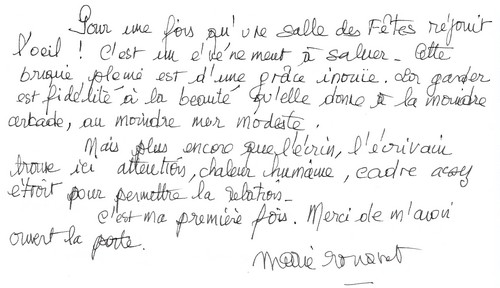 Pour une fois qu'une salle des Fêtes réjouit
l'oeil ! C'est un événement à saluer - Cette
brique est d'une grâce inouïe. La garder
est fidélité à la beauté qu'elle donne à la moindre
arcade, au moindre mur modeste.
Mais plus encore que l'écrin, l'écrivain
trouve ici attention, chaleur humaine, cadre assez
étroit pour permettre la relation -
C'est ma première fois. Merci de m'avoir
ouvert la porte.
Marie Rouanet